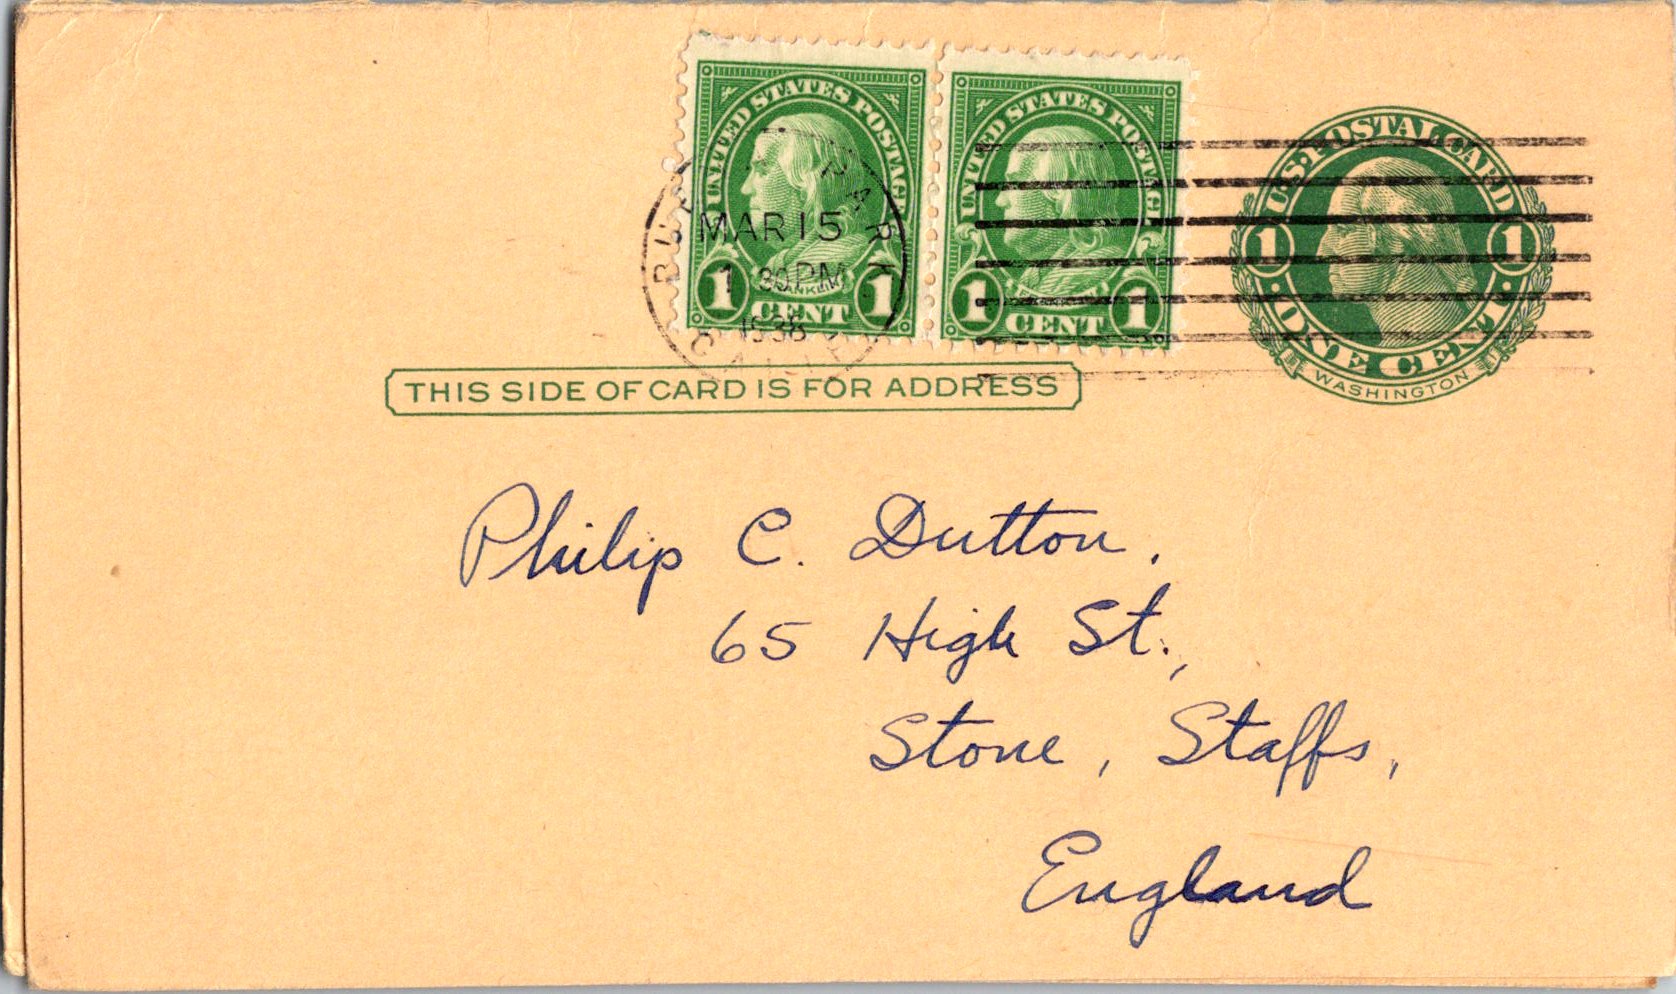 UNITED STATES POSTAGE
FRANKLIN
1 CENT 1
UNITED STATES POSTAGE
1 CENT 1
U.S. POSTAL CARD
1 1
ONE CENT
WASHINGTON
BUENA PARK
MAR 15
1 30 PM
1938
CALIF.
THIS SIDE OF CARD IS FOR ADDRESS
Philip C. Dutton,
65 High St.,
Stone, Staffs,
England